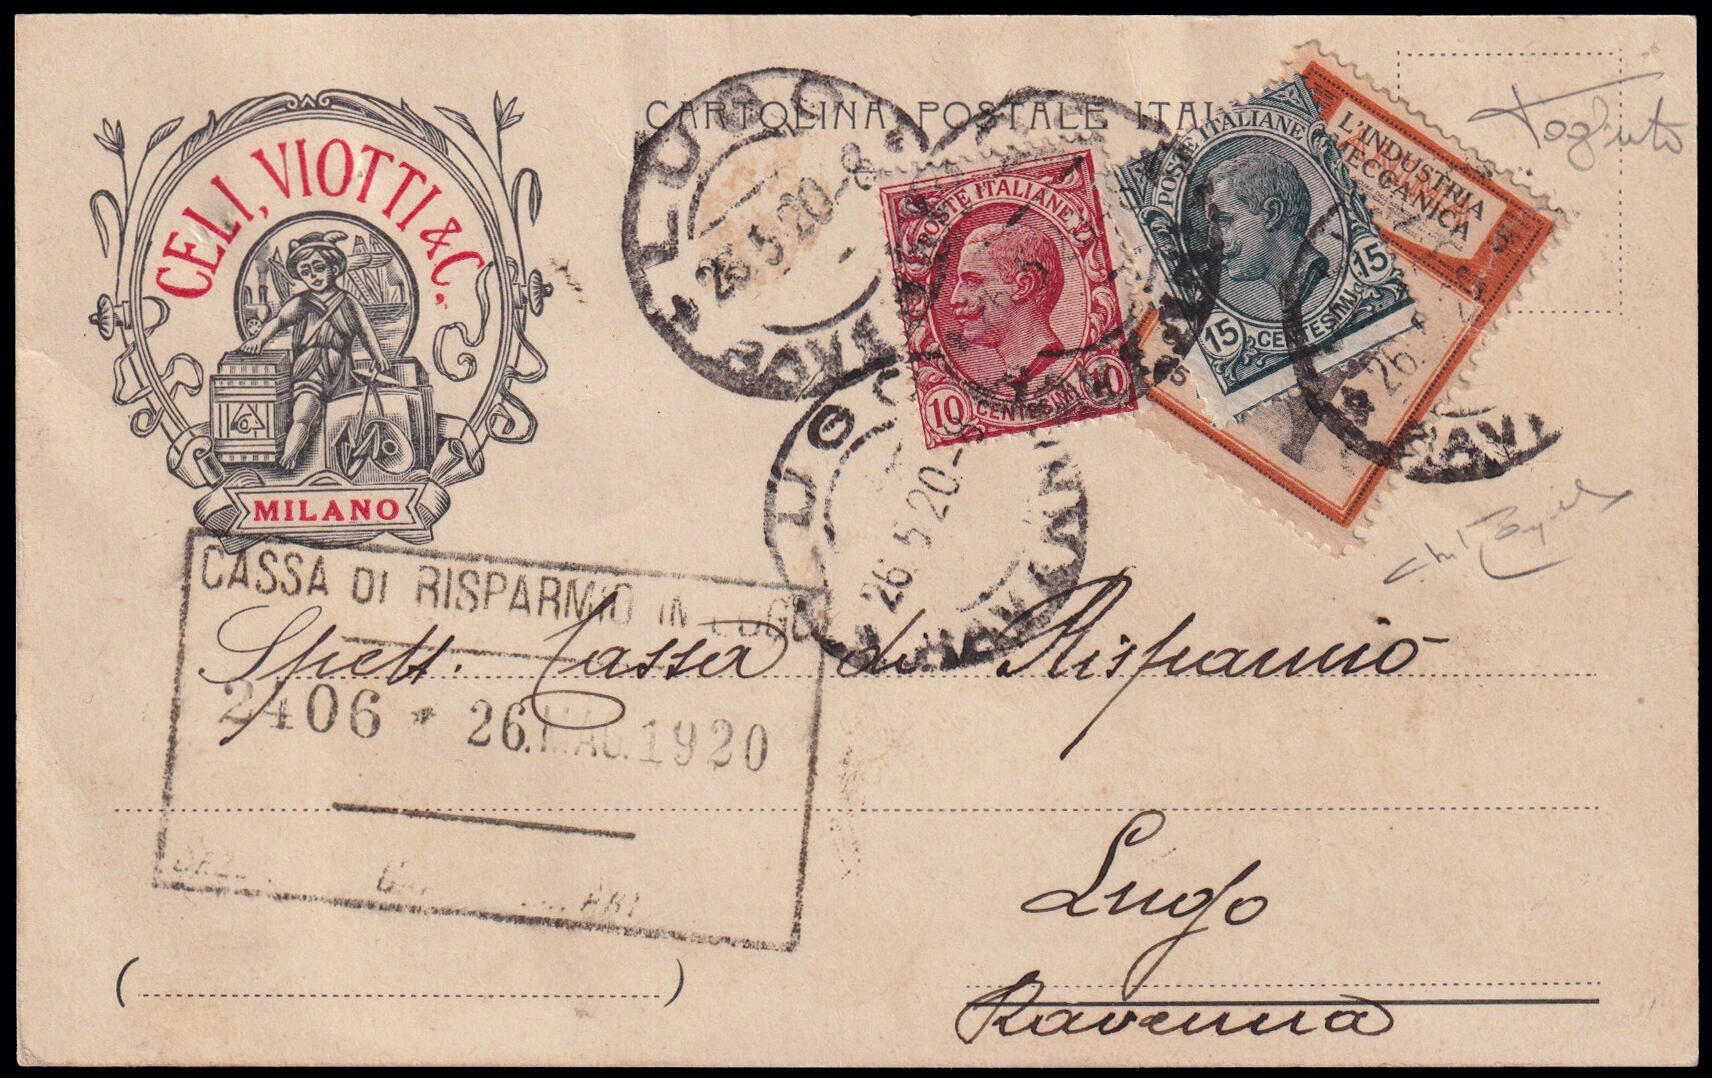 CARTOLINA POSTALE ITAL
CELI, VIOTTI & C.
MILANO
LUGO
26.5.20-8
LUGO
26.5.20-8
RAVENNA
POSTE ITALIANE
10 CENTESIMI 10
POSTE ITALIANE
15 CENTESIMI 15
L'INDUSTRIA
MECCANICA
26.
CASSA DI RISPARMIO IN LUGO
2406 * 26.MAG.1920
Spett. Cassa di Risparmio
Lugo
Ravenna
(
)